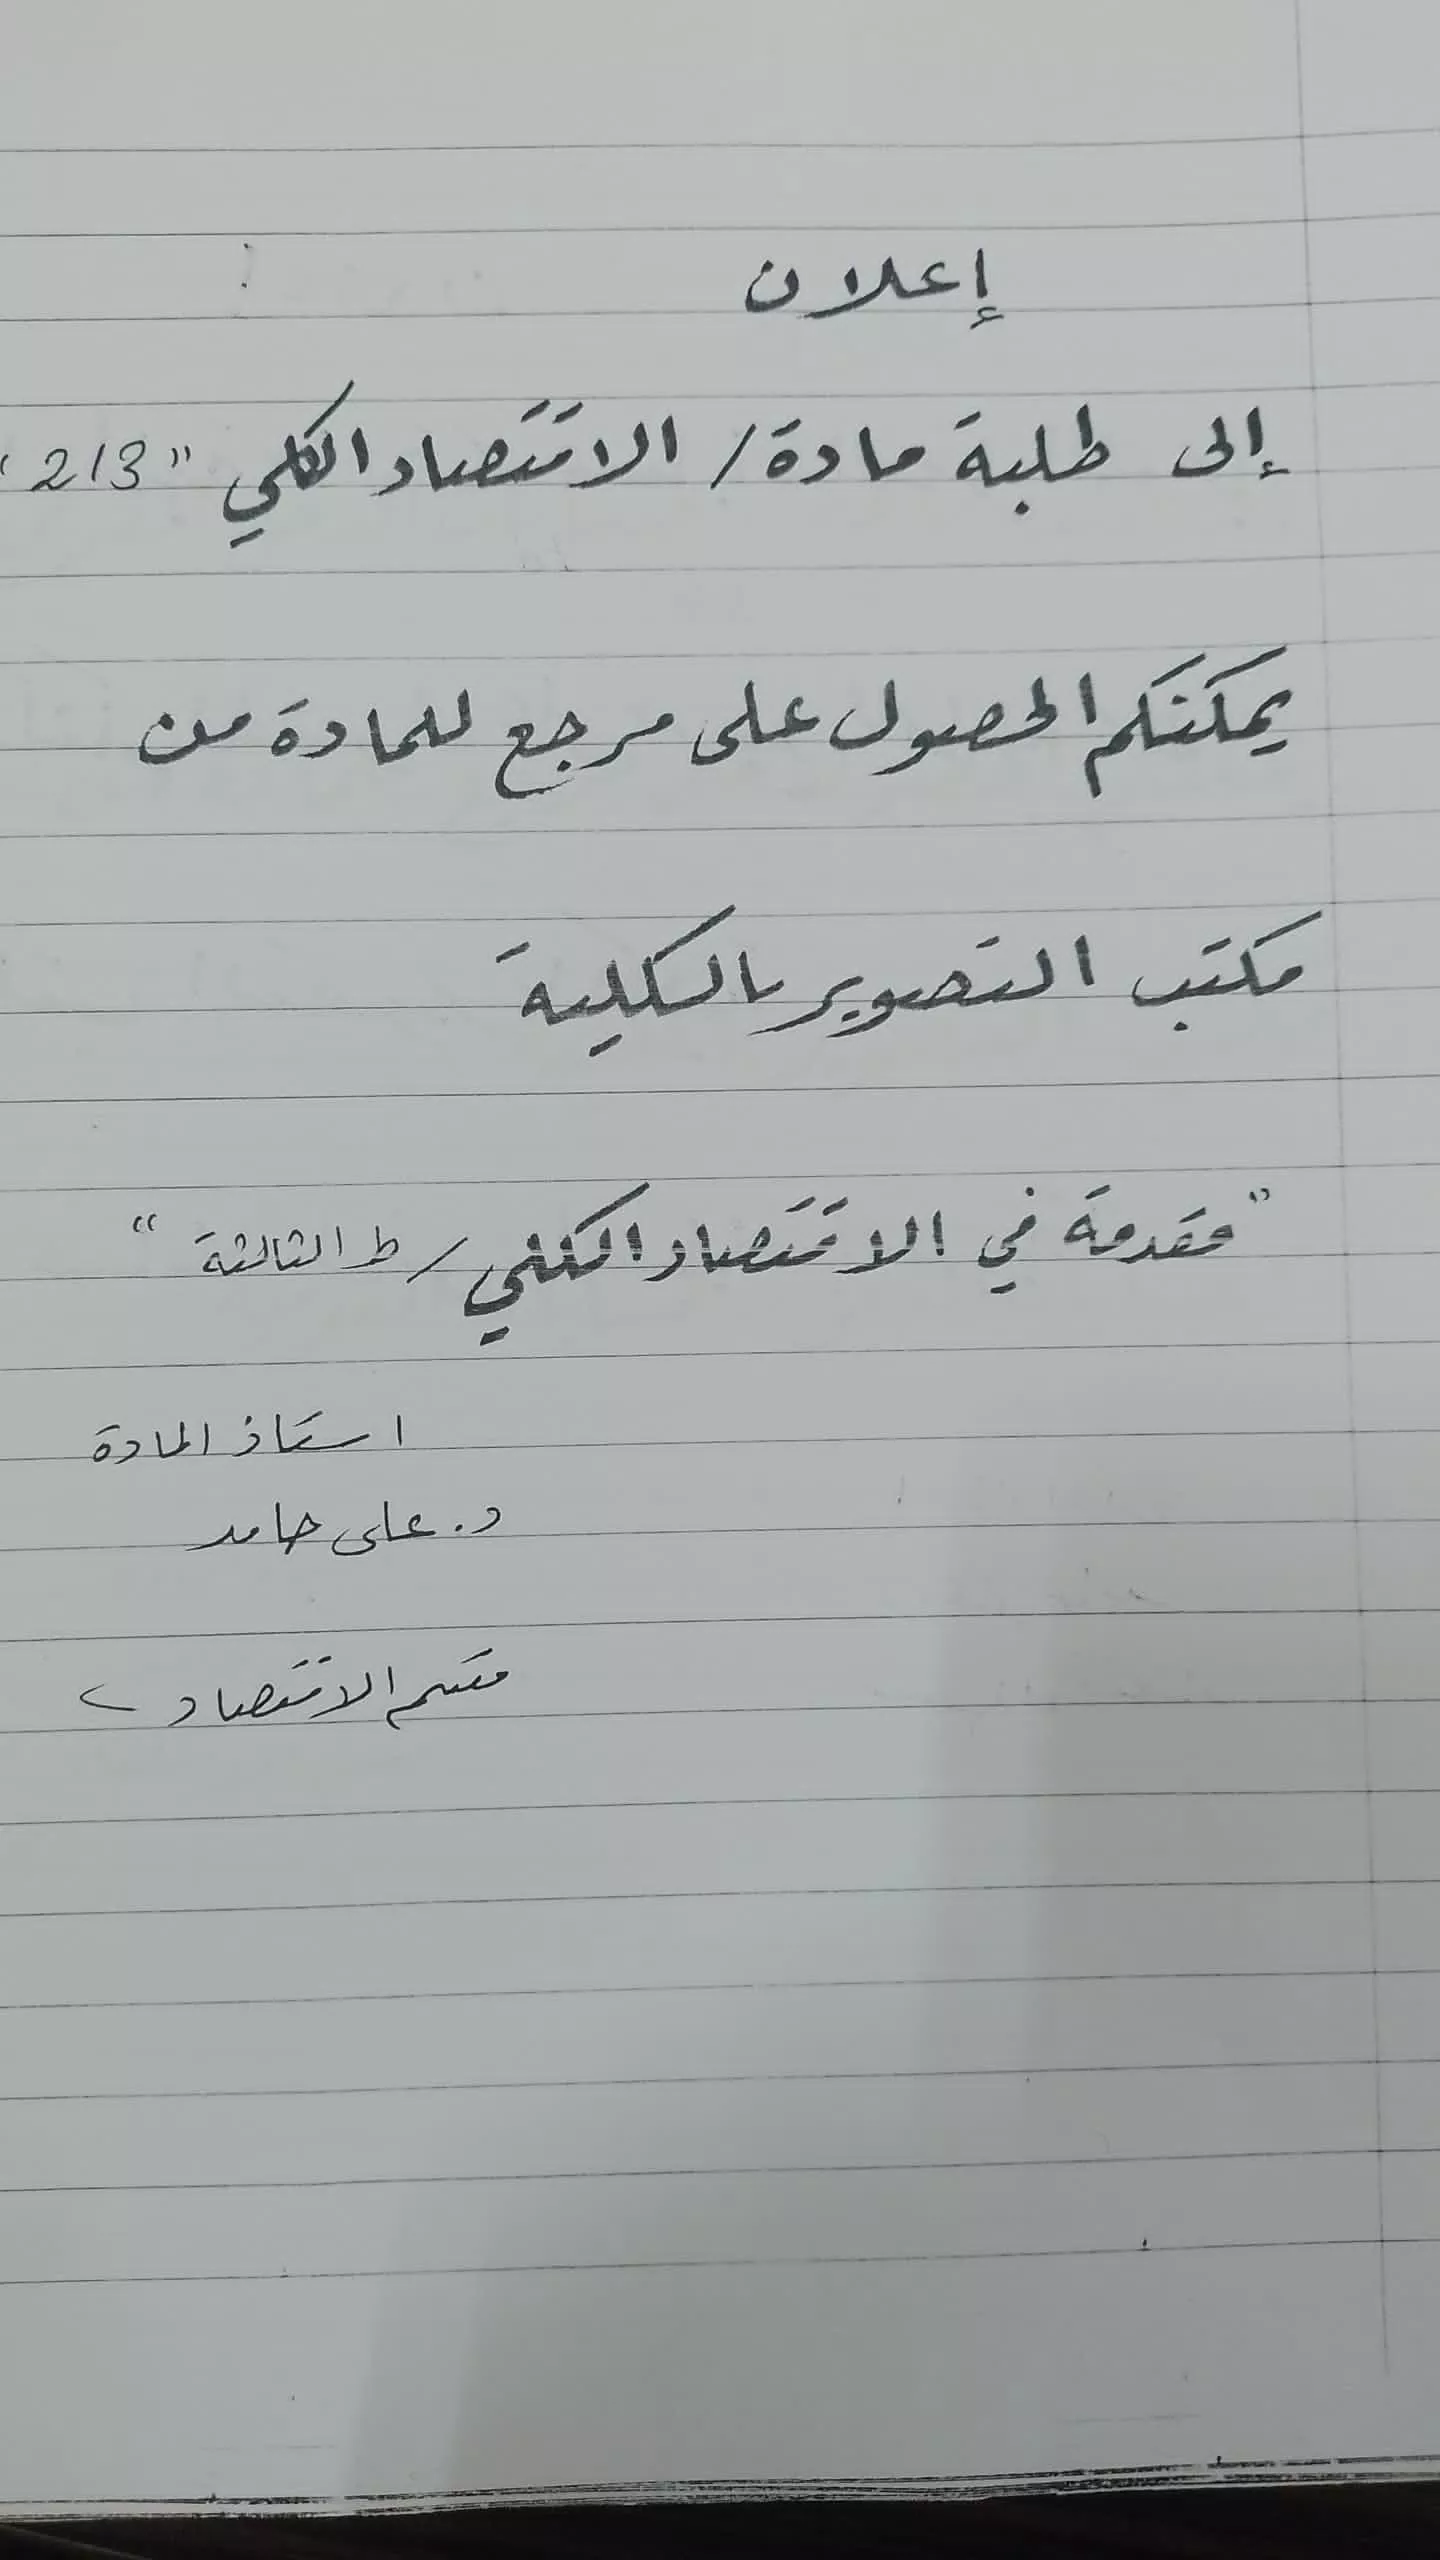 إعلان
إلى طلبة مادة / الاقتصاد الكلي "213"
يمكنكم الحصول على مرجع للمادة من
مكتب التصوير بالكلية
"مقدمة في الاقتصاد الكلي / ط الثالثة"
استاذ المادة
د. علي حامد
قسم الاقتصاد